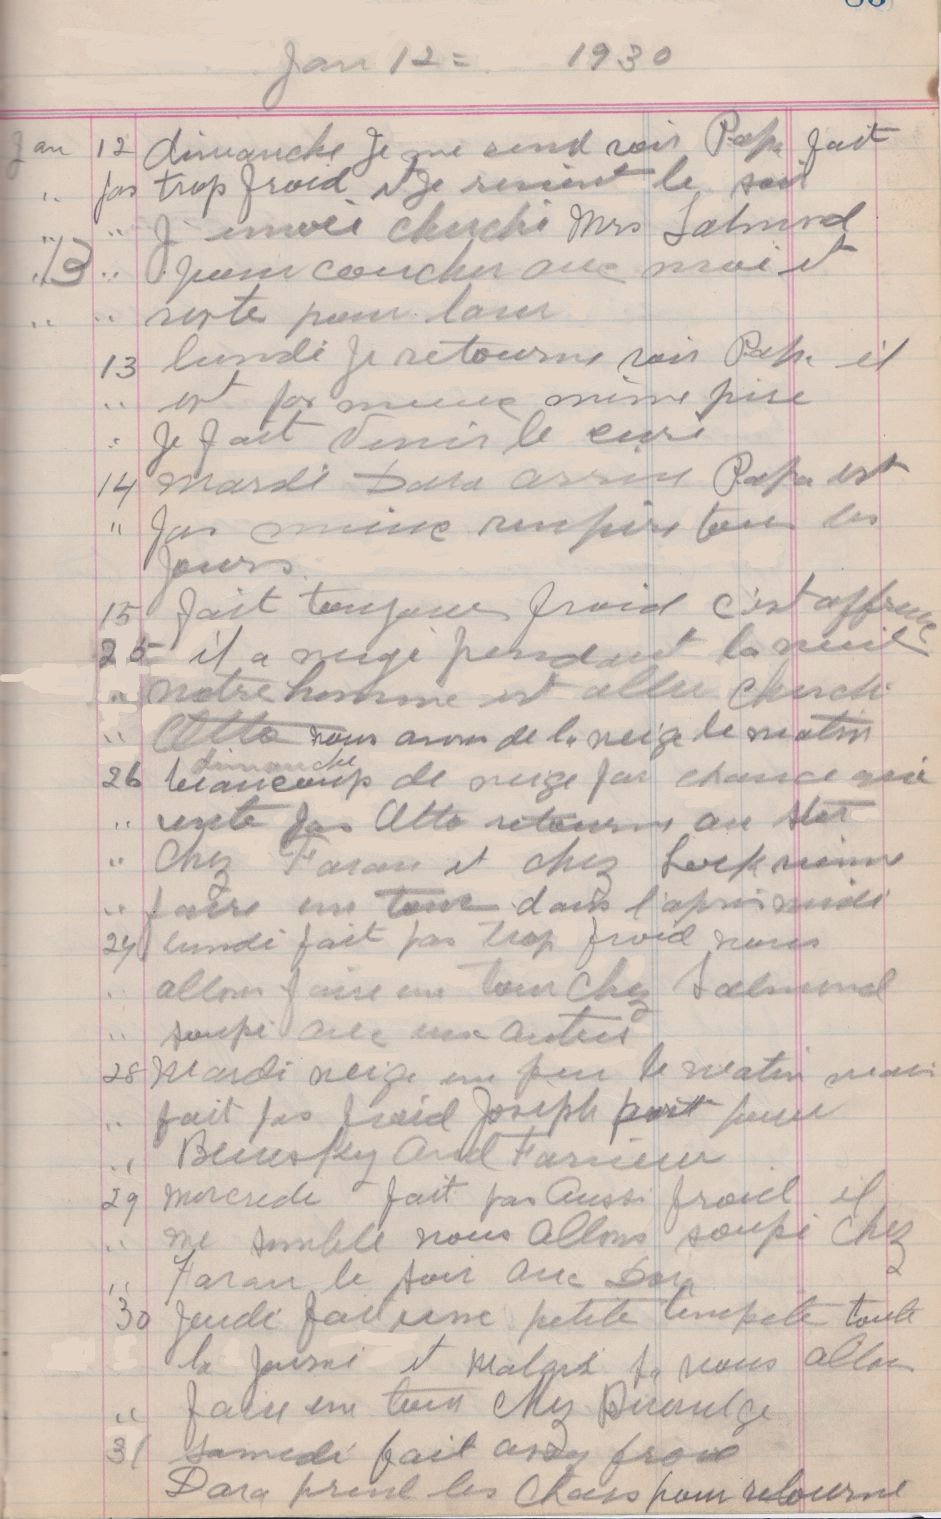 Jan 12 = 1930
Jan 12 dimanche Je me rend voir Papa fait
" pas trop froid et je revient le soir
" " J envoie cherché Mrs Salmond
" 13 " pour coucher avec moi et
" " reste pour laver
13 lundi Je retourne voir Papa il
" est pas mieux même pire
" Je fait venir le curé
14 mardi Dora arrive Papa est
" pas mieux rempire tous les
jours
15 fait toujours froid c'est affreux
25 il a neigé pendant la nuit
" notre homme est aller cherché
" Otto nous avons de la neige le matin
dimanche
26 beaucoup de neige par chance qui
" vente pas Otto retourne au
" Chez Faran et chez
" faire une tour dans l'après midi
27 lundi fait pas trop froid nous
" allons faire un tour chez Salmond
" soupé avec eux autres
28 Mardi neige un peu le matin mais
" fait pas froid Joseph part pour
" Bluesky and Farview
29 mercredi fait pas aussi froid il
" me semble nous allons soupé chez
" Faran le soir avec Dora
30 jeudi fait une petite tempête toute
la journé et malgré sa nous allons
" faire un tour chez
31 samedi fait assez froid
Dora prend les chars pour retourné